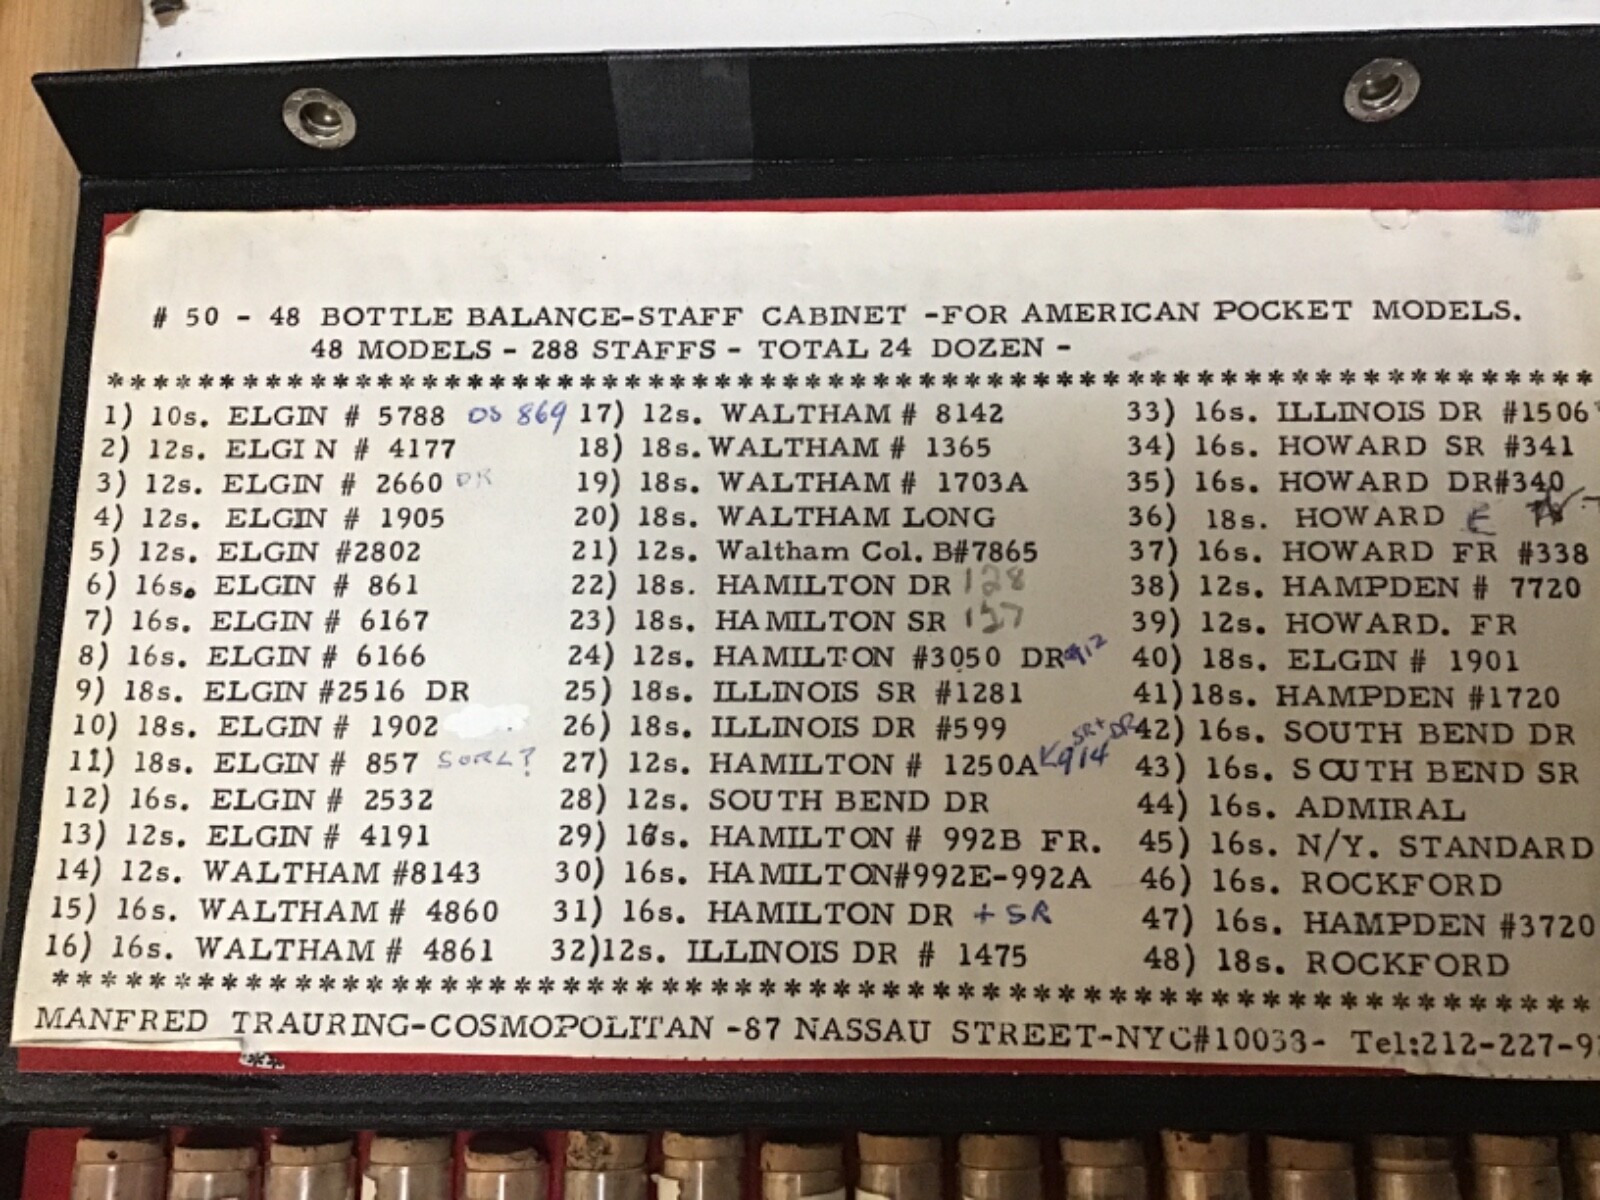 # 50 - 48 BOTTLE BALANCE-STAFF CABINET -FOR AMERICAN POCKET MODELS.
48 MODELS - 288 STAFFS - TOTAL 24 DOZEN -
******************************************************************
1) 10s. ELGIN # 5788 DS 869
2) 12s. ELGIN # 4177
3) 12s. ELGIN # 2660 DR
4) 12s. ELGIN # 1905
5) 12s. ELGIN #2802
6) 16s. ELGIN # 861
7) 16s. ELGIN # 6167
8) 16s. ELGIN # 6166
9) 18s. ELGIN #2516 DR
10) 18s. ELGIN # 1902
11) 18s. ELGIN # 857 S or L?
12) 16s. ELGIN # 2532
13) 12s. ELGIN # 4191
14) 12s. WALTHAM #8143
15) 16s. WALTHAM # 4860
16) 16s. WALTHAM # 4861
17) 12s. WALTHAM # 8142
18) 18s. WALTHAM # 1365
19) 18s. WALTHAM # 1703A
20) 18s. WALTHAM LONG
21) 12s. Waltham Col. B#7865
22) 18s. HAMILTON DR 128
23) 18s. HAMILTON SR 127
24) 12s. HAMILTON #3050 DR 912
25) 18s. ILLINOIS SR #1281
26) 18s. ILLINOIS DR #599
27) 12s. HAMILTON # 1250A K914 SR + DR
28) 12s. SOUTH BEND DR
29) 16s. HAMILTON # 992B FR.
30) 16s. HAMILTON#992E-992A
31) 16s. HAMILTON DR + SR
32)12s. ILLINOIS DR # 1475
33) 16s. ILLINOIS DR #1506
34) 16s. HOWARD SR #341
35) 16s. HOWARD DR#340
36) 18s. HOWARD E
37) 16s. HOWARD FR #338
38) 12s. HAMPDEN # 7720
39) 12s. HOWARD. FR
40) 18s. ELGIN # 1901
41)18s. HAMPDEN #1720
42) 16s. SOUTH BEND DR
43) 16s. SOUTH BEND SR
44) 16s. ADMIRAL
45) 16s. N/Y. STANDARD
46) 16s. ROCKFORD
47) 16s. HAMPDEN #3720
48) 18s. ROCKFORD
******************************************************************
MANFRED TRAURING-COSMOPOLITAN -87 NASSAU STREET-NYC#10038- Tel:212-227-9